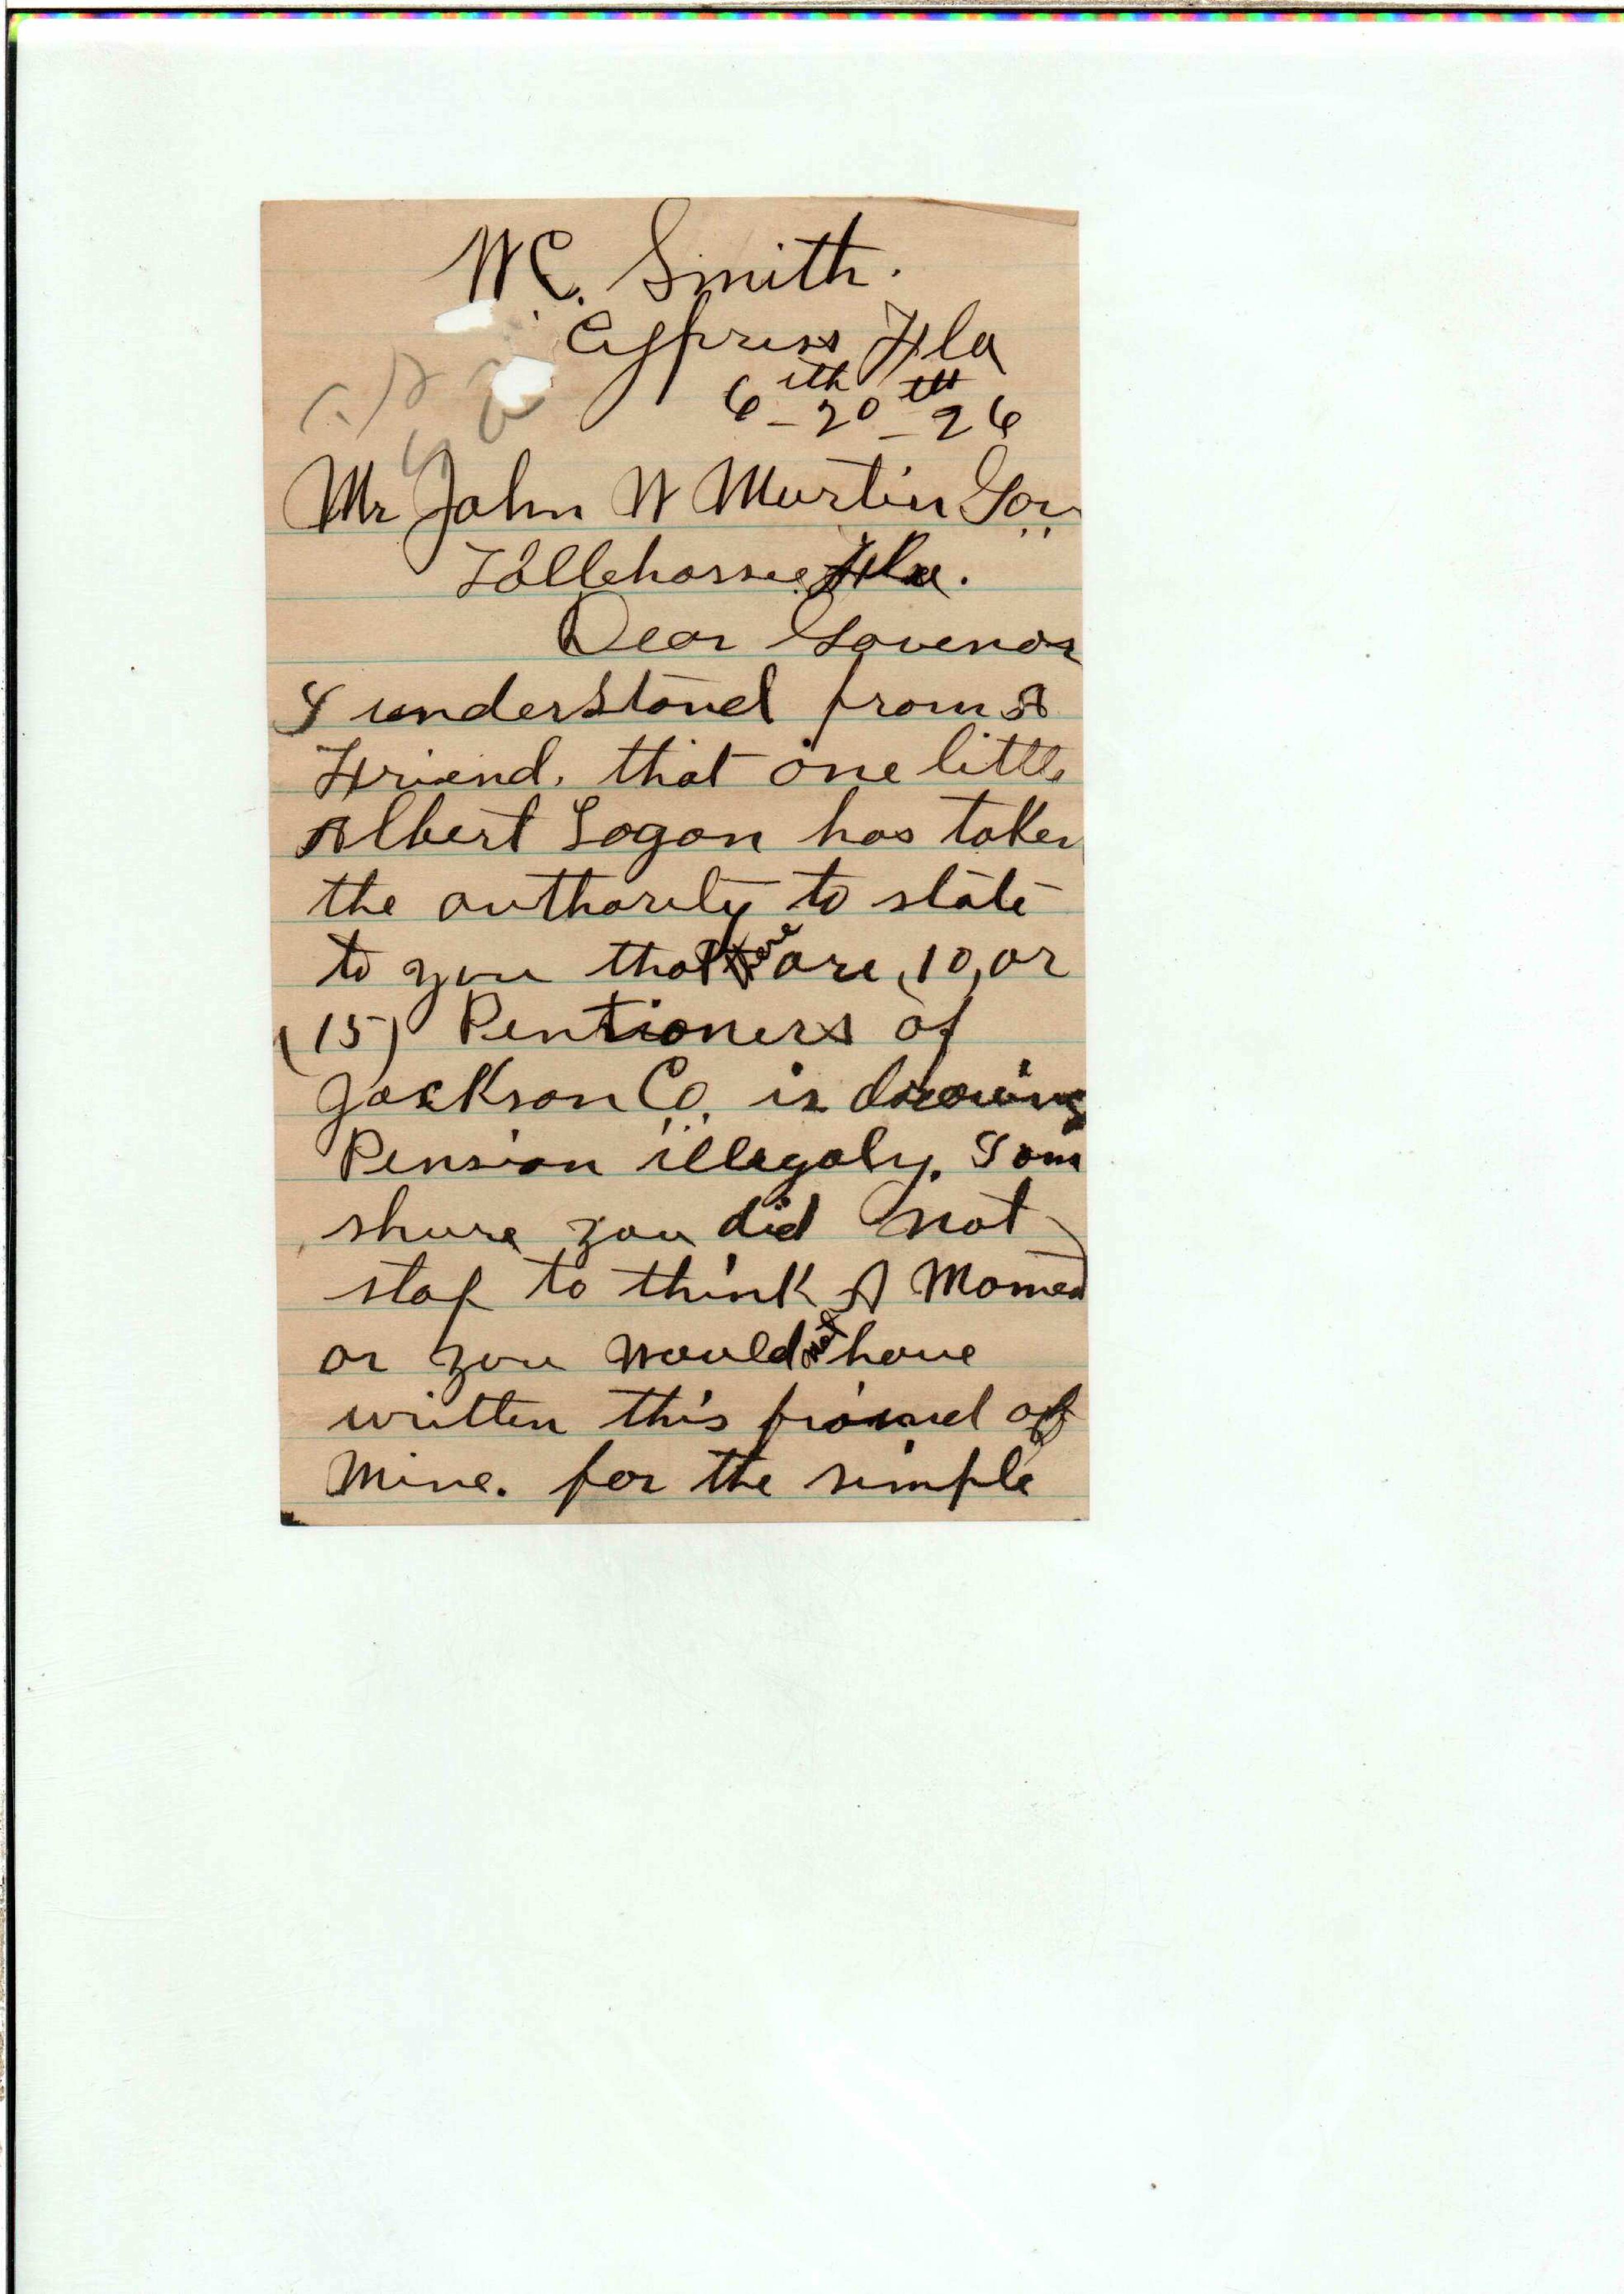 WC. Smith.
Cypress Fla
6 - 20 - 26
Mr John W Martin Gov.
Tallehassee Fla.
Dear Govenor
I understand from A
Friend. that one little
Albert Logan has taken
the authority to state
to you that there are, 10, or
(15) Pentioners of
Jackson Co. is drawing
Pension illegaly. I am
shure you did not
stop to think A Moment
or you would not have
written this friend of
Mine. for the simple